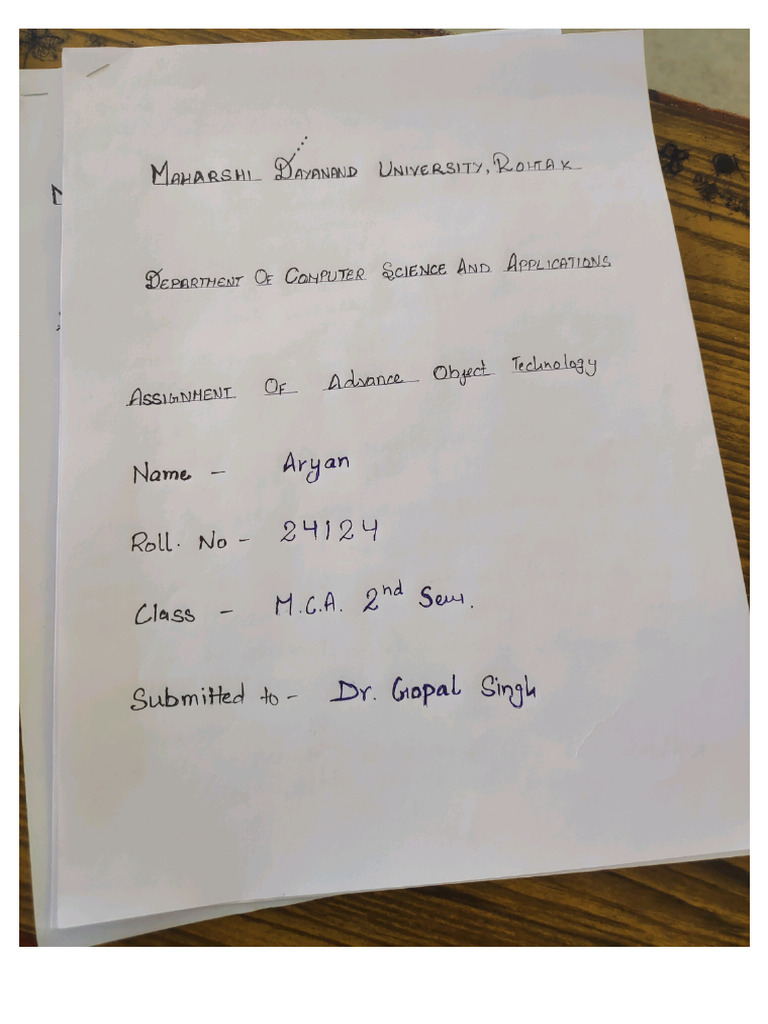 MAHARSHI DAYANAND UNIVERSITY, ROHTAK
DEPARTMENT OF COMPUTER SCIENCE AND APPLICATIONS
ASSIGNMENT OF Advance Object Technology
Name - Aryan
Roll. No - 24124
Class - M.C.A. 2nd Sem.
Submitted to - Dr. Gopal Singh